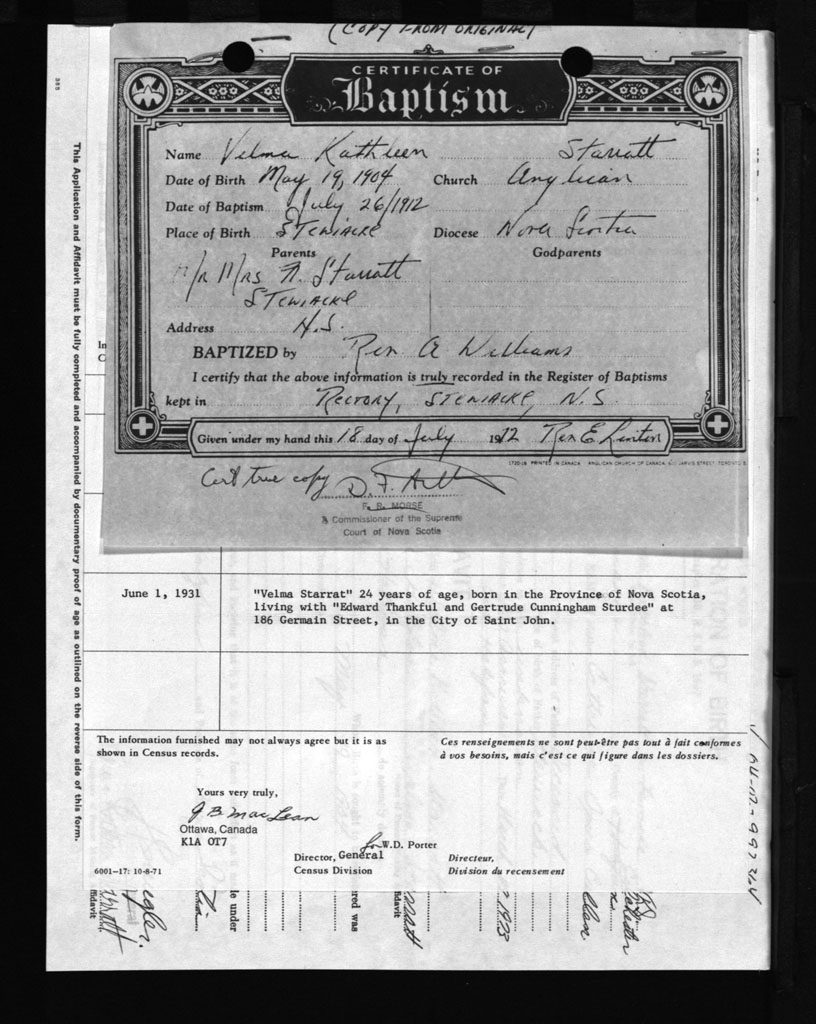 (COPY FROM ORIGINAL)
CERTIFICATE OF
Baptism
Name Velma Kathleen Starratt
Date of Birth May 19, 1904 Church Anglican
Date of Baptism July 26/1912
Place of Birth STEWIACKE Diocese Nova Scotia
Parents Godparents
Mrs Starratt
STEWIACKE
Address N.S.
BAPTIZED by Rev. A Williams
I certify that the above information is truly recorded in the Register of Baptisms
kept in RECTORY, STEWIACKE, N.S.
Given under my hand this 18 day of July 1972 Rev E. Linton
PRINTED IN CANADA ANGLICAN CHURCH OF CANADA, 600 JARVIS STREET, TORONTO
Cert true copy D. F.
F. B. MORSE
A Commissioner of the Supreme
Court of Nova Scotia
This Application and Affidavit must be fully completed and accompanied by documentary proof of age as outlined on the reverse side of this form.
June 1, 1931 "Velma Starrat" 24 years of age, born in the Province of Nova Scotia,
living with "Edward Thankful and Gertrude Cunningham Sturdee" at
186 Germain Street, in the City of Saint John.
The information furnished may not always agree but it is as
shown in Census records.
Ces renseignements ne sont peut-être pas tout à fait conformes
à vos besoins, mais c'est ce qui figure dans les dossiers.
Yours very truly,
J B MacLean
Ottawa, Canada
K1A OT7
for W.D. Porter
Director, General
Census Division
Directeur,
Division du recensement
6001-17: 10-8-71
le under
red was
fidavit
fidavit